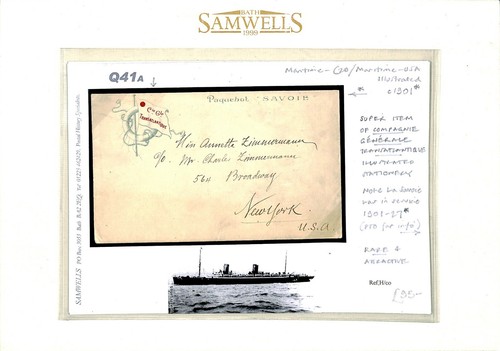 BATH
SAMWELLS
1999
Q41A
MARITIME - CGT / MARITIME - USA
ILLUSTRATED
c1901*
Cie Gle
TRANSATLANTIQUE
Paquebot "SAVOIE
Miss Annetta Zimmermann
c/o Mr. Charles Zimmermann
564 Broadway
New York
U.S.A
SUPER ITEM
OF COMPAGNIE
GÉNÉRALE
TRANSATLANTIQUE
ILLUSTRATED
STATIONERY
NOTE LA SAVOIE
WAS IN SERVICE
1901-27*
(PTO for info)
RARE &
ATTRACTIVE
Ref.H/co
£95-
SAMWELLS PO Box 3103 Bath BA2 Tel: 01225 462429. Postal History Specialists.